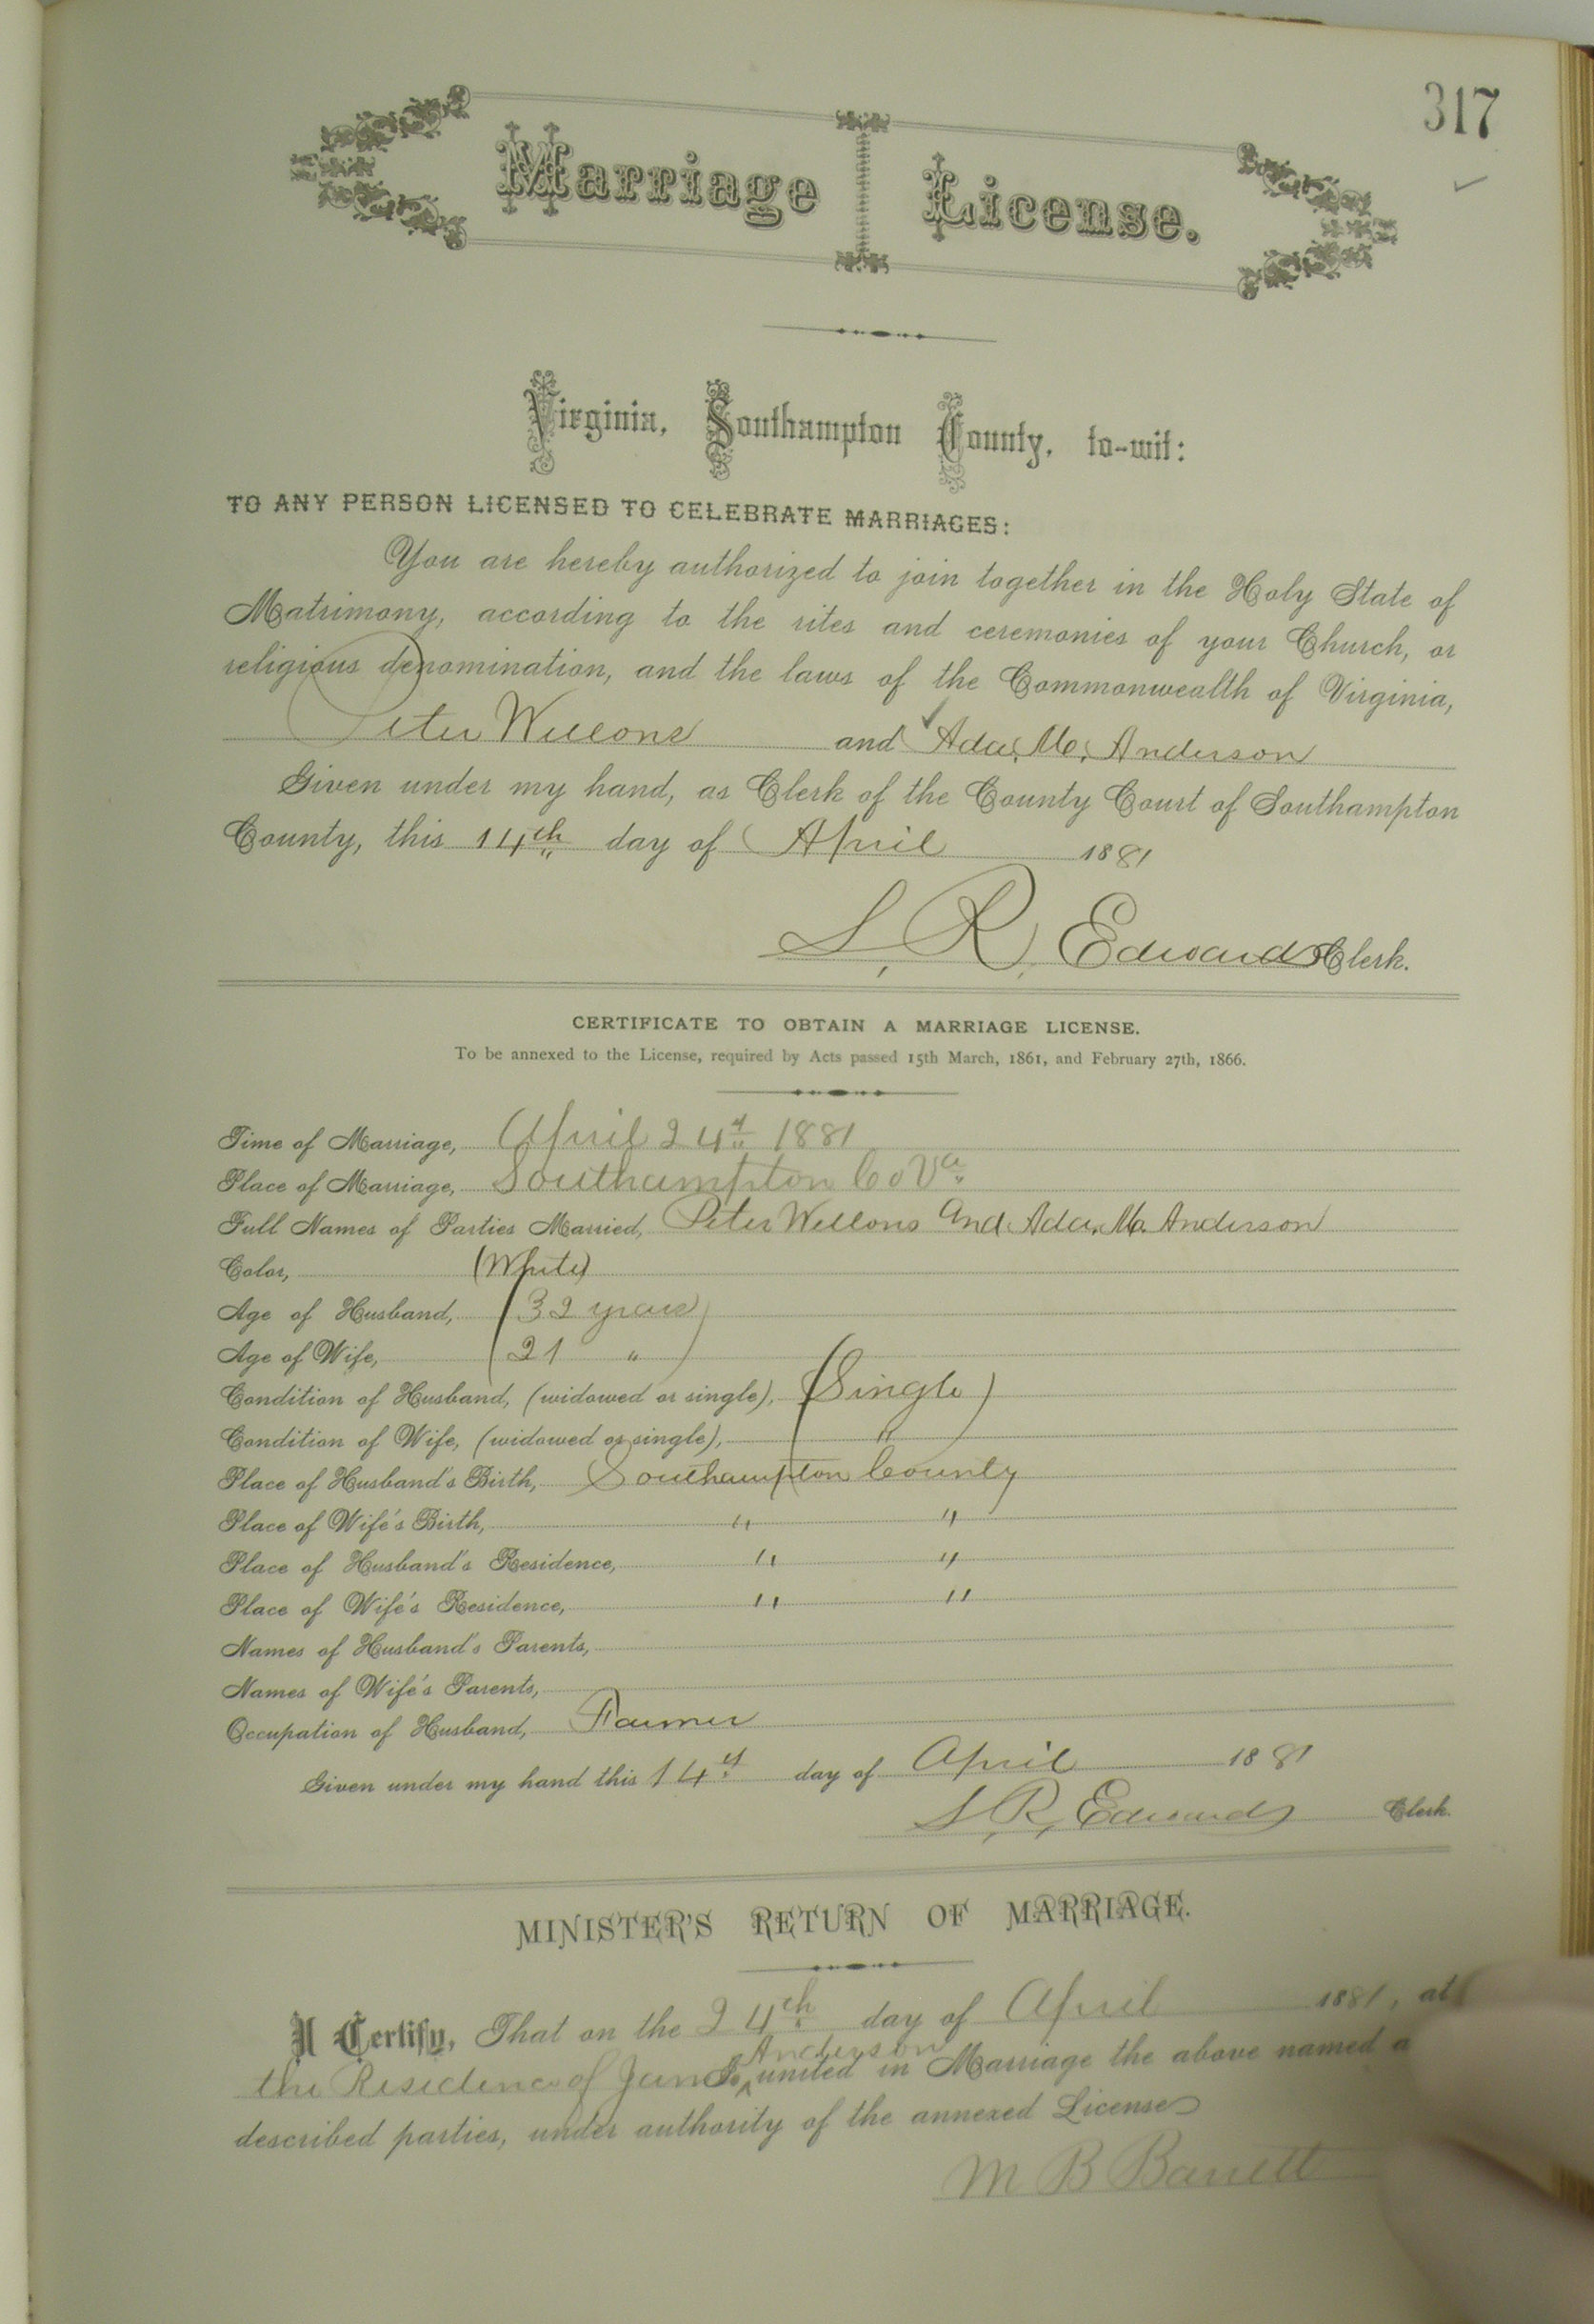 317
Marriage License.
Virginia, Southampton County, to-wit:
TO ANY PERSON LICENSED TO CELEBRATE MARRIAGES:
You are hereby authorized to join together in the Holy State of
Matrimony, according to the rites and ceremonies of your Church, or
religious denomination, and the laws of the Commonwealth of Virginia,
Peter Wellons and Ada. M. Anderson
Given under my hand, as Clerk of the County Court of Southampton
County, this 14th day of April 1881
L. R. Edwards Clerk.
CERTIFICATE TO OBTAIN A MARRIAGE LICENSE.
To be annexed to the License, required by Acts passed 15th March, 1861, and February 27th, 1866.
Time of Marriage, April 24th 1881
Place of Marriage, Southampton Co Va
Full Names of Parties Married, Peter Wellons and Ada. M. Anderson
Color, (White)
Age of Husband, (32 years)
Age of Wife, (21 " )
Condition of Husband, (widowed or single), (Single)
Condition of Wife, (widowed or single), ( " )
Place of Husband's Birth, Southampton County
Place of Wife's Birth, " "
Place of Husband's Residence, " "
Place of Wife's Residence, " "
Names of Husband's Parents,
Names of Wife's Parents,
Occupation of Husband, Farmer
Given under my hand this 14th day of April 1881
L. R. Edwards Clerk.
MINISTER'S RETURN OF MARRIAGE.
I Certify, That on the 24th day of April 1881, at
Anderson
the Residence of James I united in Marriage the above named a
described parties, under authority of the annexed License
M B Barrett